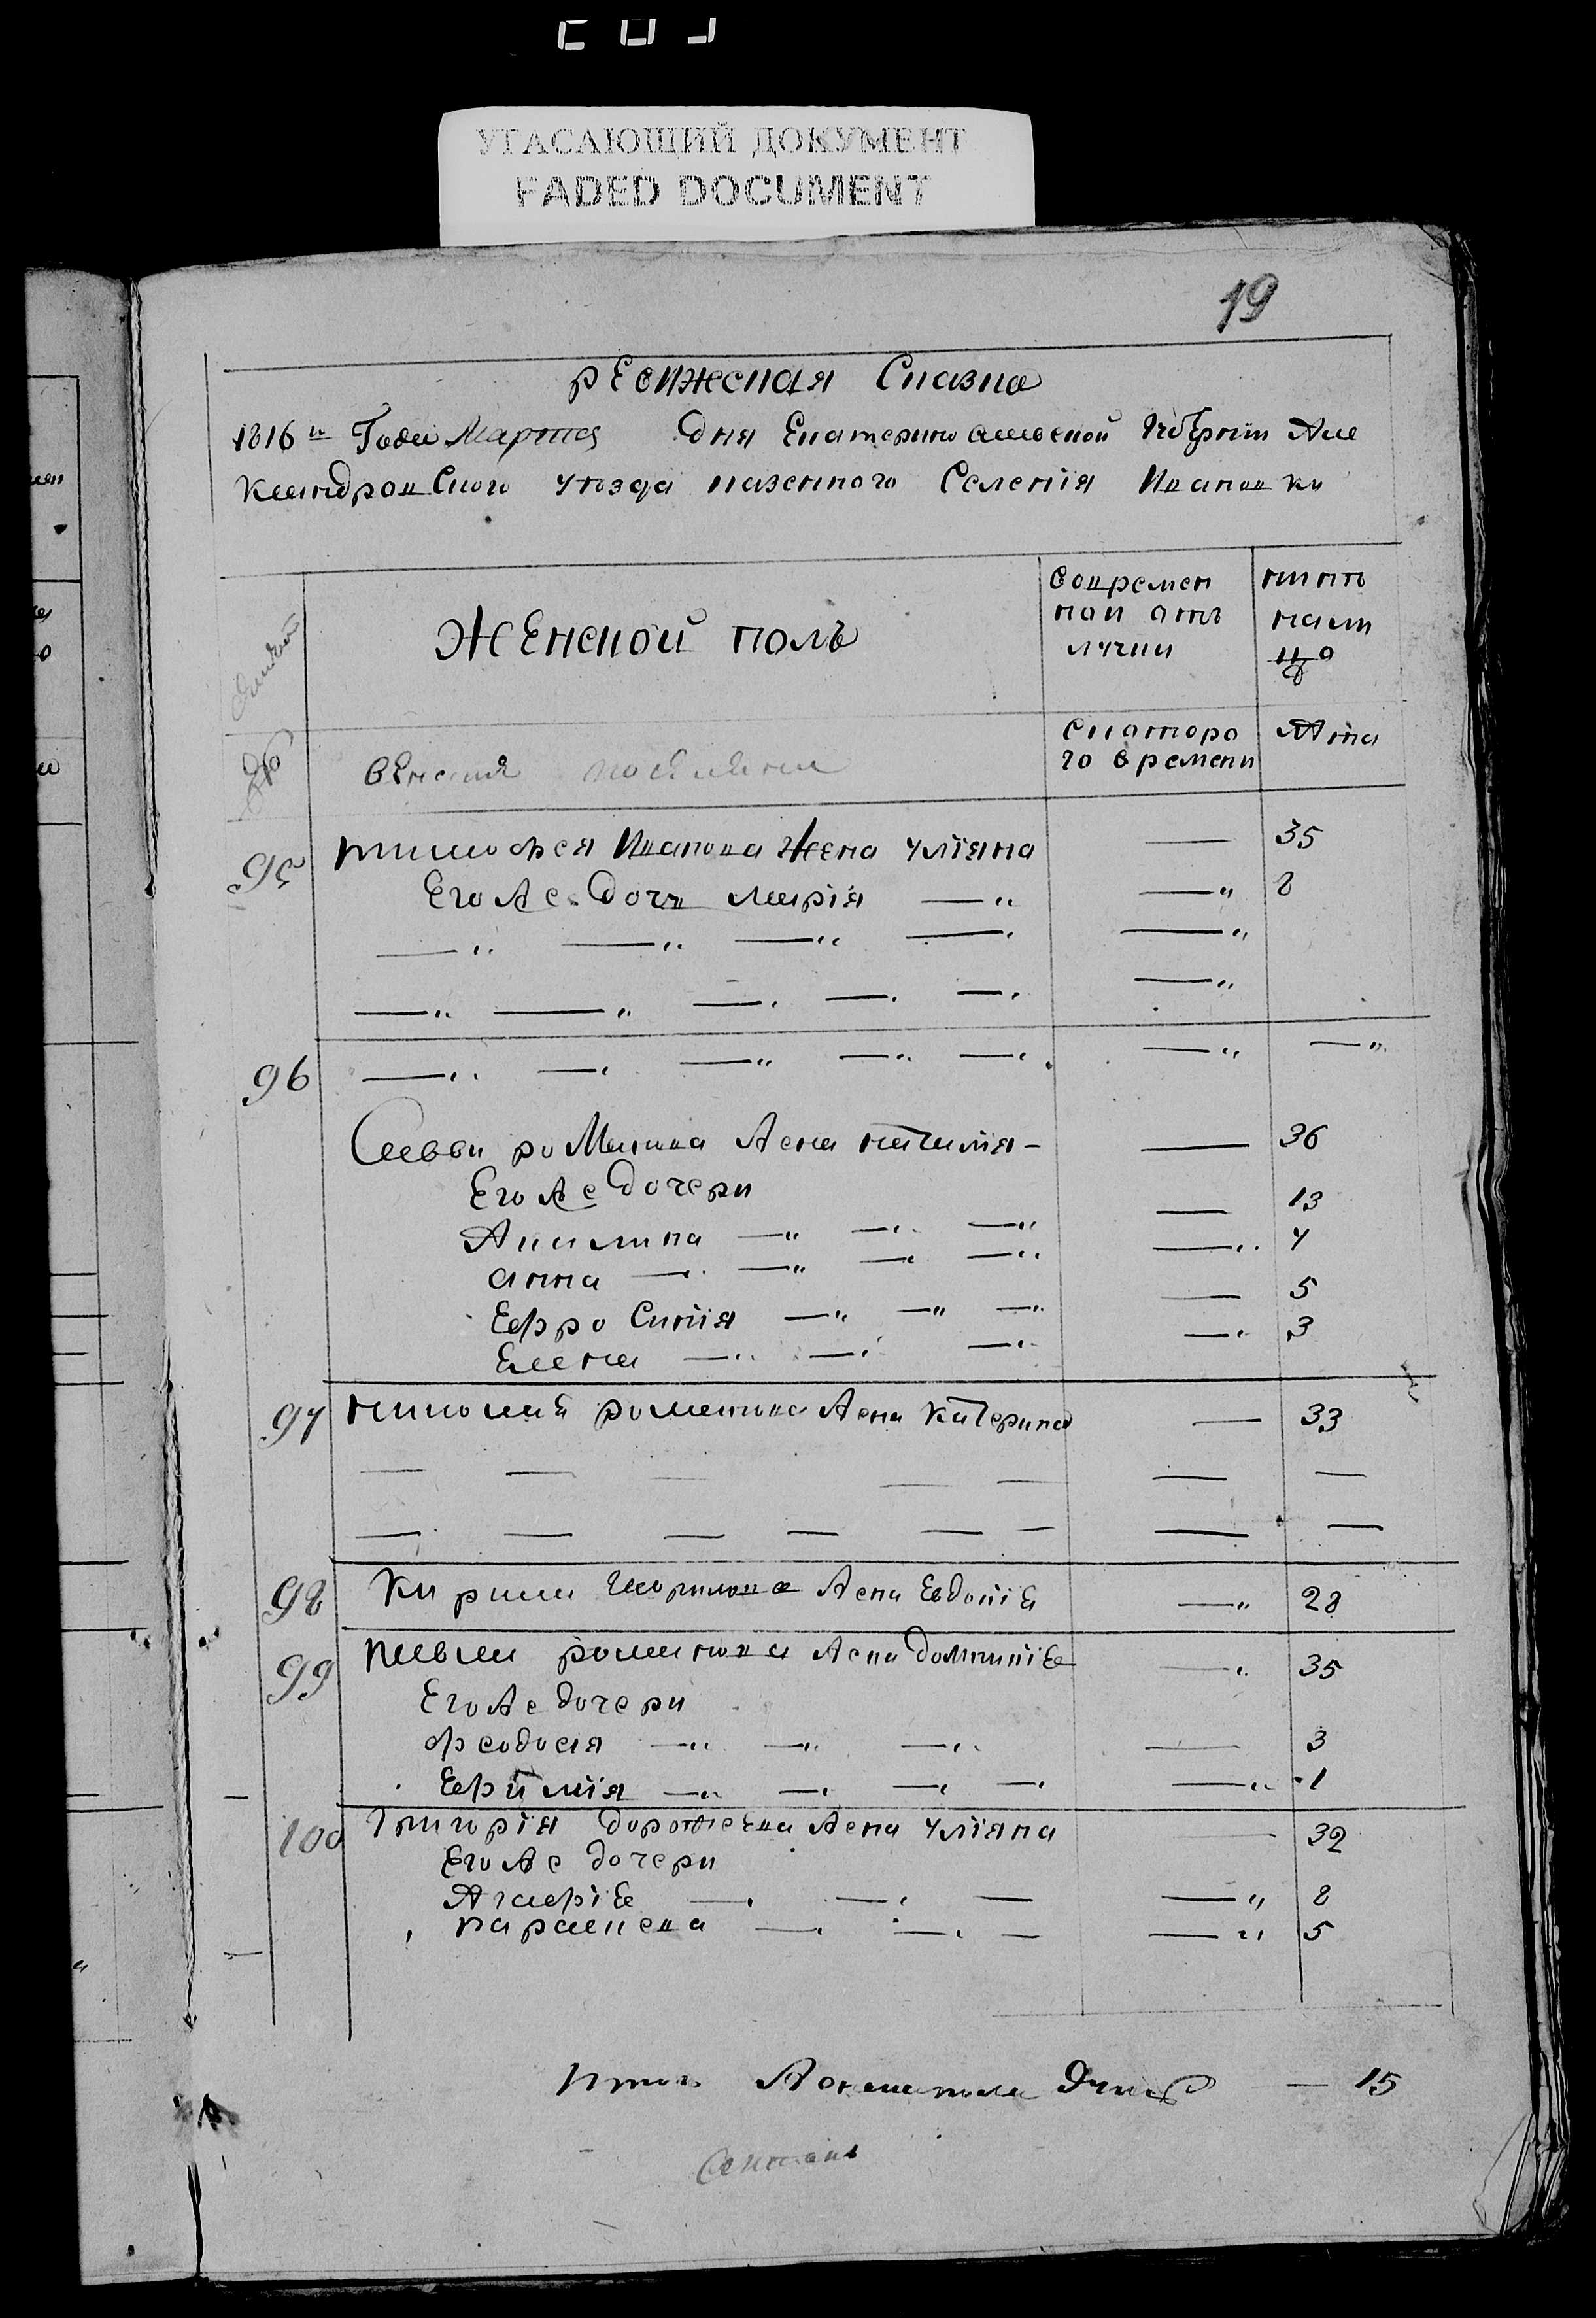 УГАСАЮЩИЙ ДОКУМЕНТ
FADED DOCUMENT
19
рЕвижсная Сказка
1816го Года Марта дня Екатеринославской Губернiи Але
ксандровского уезда казенного Селенiя Ивановки
Женской полъ
вовремен
ной отъ
лучки
ныне
на ли
цо
№
Женскiя
скоторо
го времени
Лта
95 тимофея Иванова Жена Улiяна — 35
Его же дочь марiя —„ —„ 8
—„ —„ —„ —„ —„
—„ —„ —„ —„ —„ —„
96 —„ —„ —„ —„ —„ —„ —„
Саввы романова жена наталiя — — 36
Его же дочери — 13
Акилина —„ —„ —„ —„ 7
анна —„ —„ —„ —„ — 5
Ефросинiя —„ —„ —„ —„ 3
Елена —„ —„ —„
97 николая романова жена катерина — 33
— — — — — — —
— — — — — — — —
98 Кирила Гаврилова жена Евдокiя —„ 28
99 павла романова жена домникiя —„ 35
Его же дочери
феодосiя —„ —„ —„ — 3
Ефимiя —„ —„ —„ —„ —„ 1
100 Григорiя дорофеева жена улiяна — 32
Его же дочери
Агафiя —„ —„ — —„ 8
параскева —„ —„ — —„ 5
Итого женска пола душъ — 15